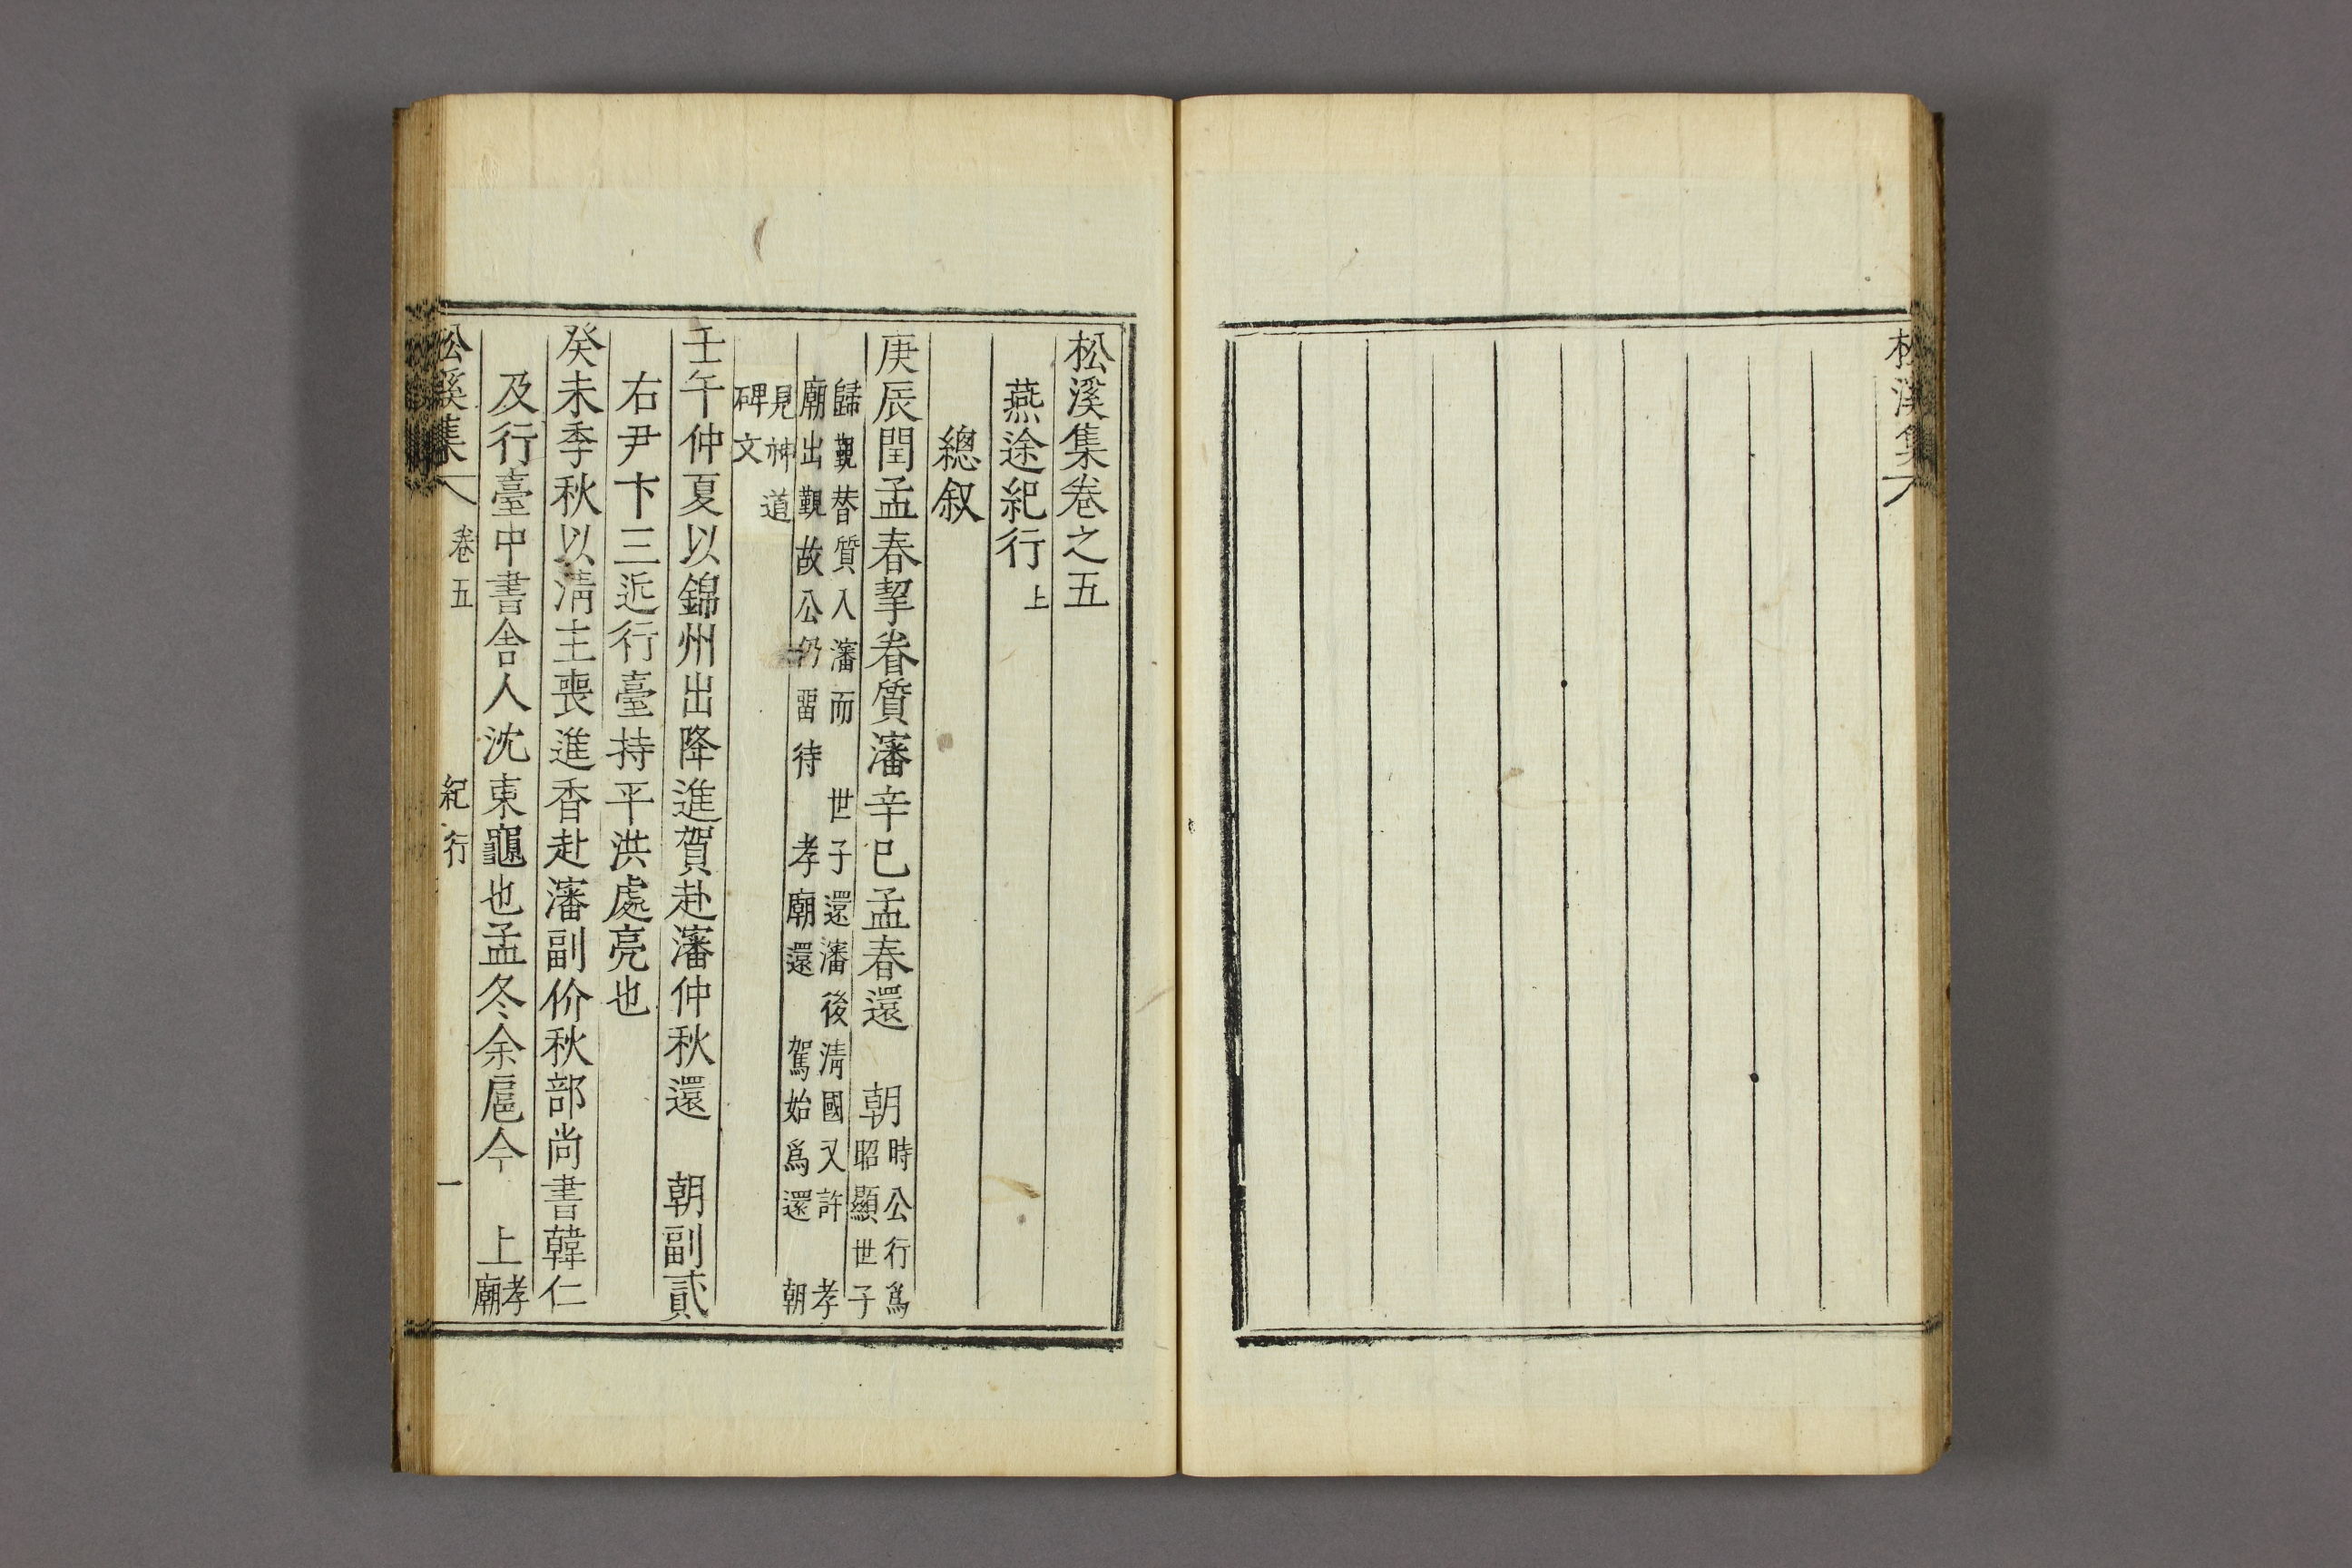 松溪集
松溪集卷之五
燕途紀行上
總叙
庚辰閏孟春挈眷質瀋辛巳孟春還 朝時公行爲
昭顯世子
歸覲替質入瀋而 世子還瀋後淸國又許 孝
廟出覲故公仍留待 孝廟還 駕始爲還 朝
見神道
碑文
壬午仲夏以錦州出降進賀赴瀋仲秋還 朝副貳
右尹卞三近行臺持平洪處亮也
癸未季秋以淸主喪進香赴瀋副价秋部尚書韓仁
及行臺中書舍人沈東龜也孟冬余扈今 上孝
廟
松溪集 卷五 紀行 一